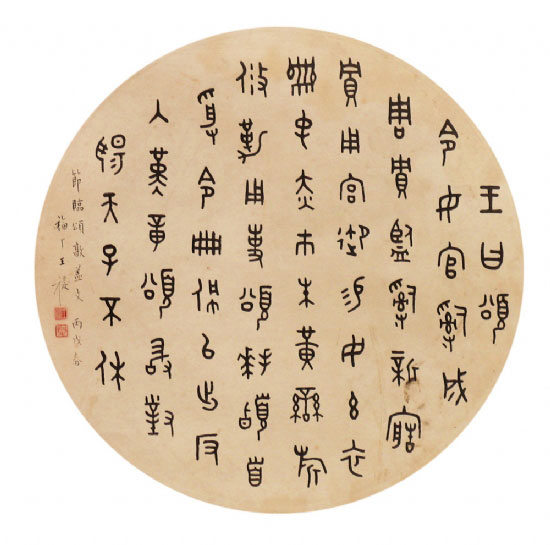 王曰頌
令女官𤔲成
周貯監𤔲新造
貯用宮御易女玄衣
黹屯赤巿朱黃䜌旂
攸勒用事頌拜䭫首
受令冊佩以出反
入堇章頌敢對
揚天子不休
節臨頌敦蓋文 丙戌春
福厂王禔